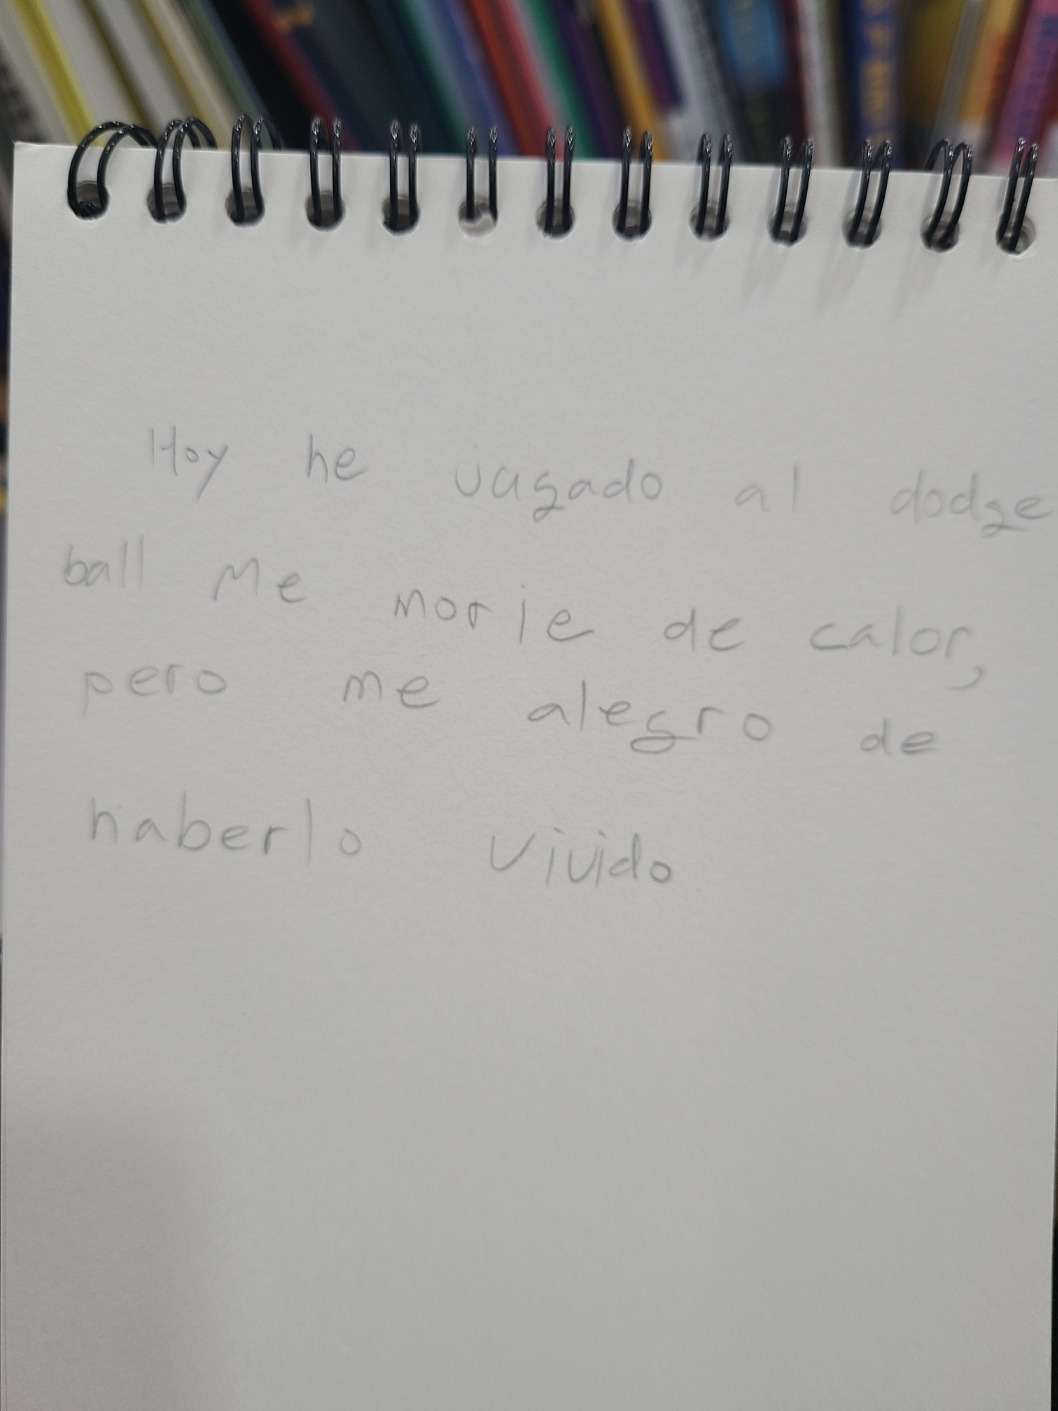 Hoy he jugado al dodge
ball Me morie de calor,
pero me alegro de
haberlo vivido